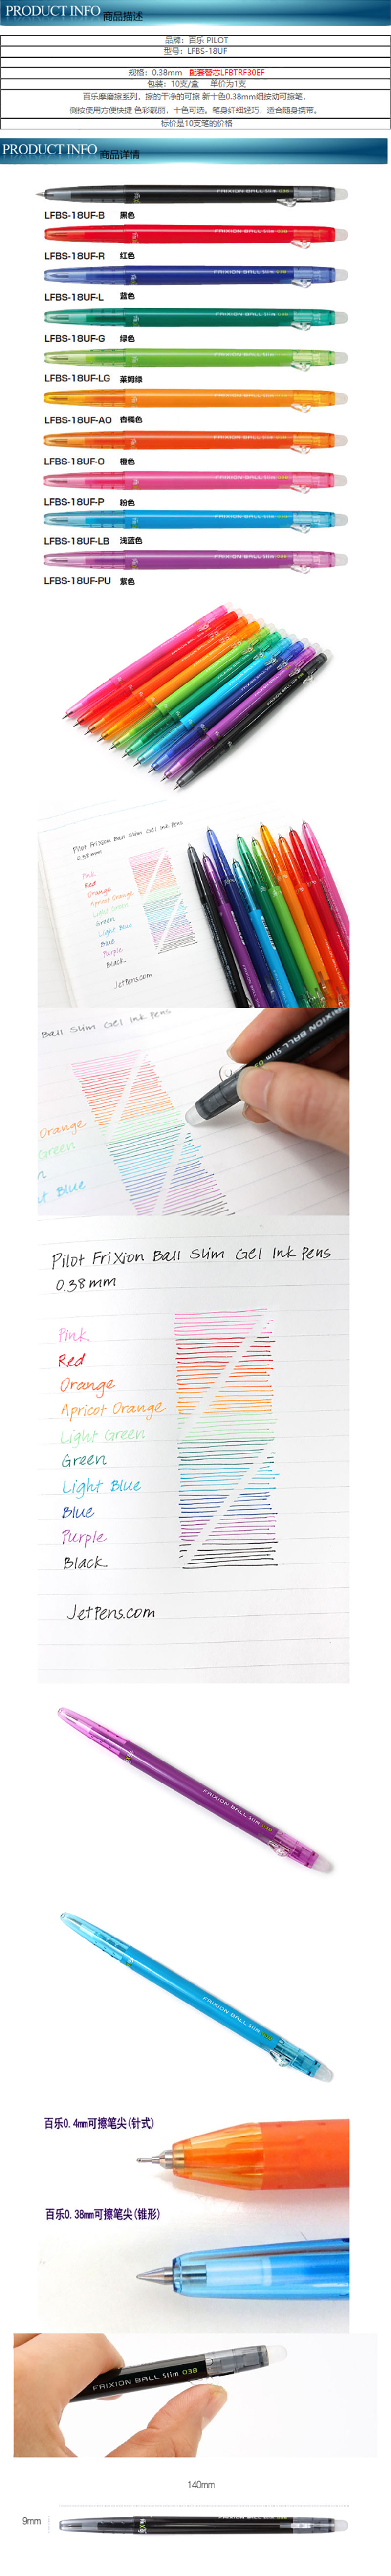 PRODUCT INFO 商品描述
品牌：百乐 PILOT
型号：LFBS-18UF
规格：0.38mm 配套替芯LFBTRF30EF
包装：10支/盒 单价为1支
百乐摩磨擦系列，擦的干净的可擦 新十色0.38mm细按动可擦笔，
侧按使用方便快捷 色彩靓丽，十色可选。笔身纤细轻巧，适合随身携带。
标价是10支笔的价格
PRODUCT INFO 商品详情
LFBS-18UF-B 黑色
FRIXION BALL Slim 038
LFBS-18UF-R 红色
LFBS-18UF-L 蓝色
LFBS-18UF-G 绿色
LFBS-18UF-LG 莱姆绿
LFBS-18UF-AO 杏橘色
LFBS-18UF-O 橙色
LFBS-18UF-P 粉色
LFBS-18UF-LB 浅蓝色
LFBS-18UF-PU 紫色
Pilot Frixion Ball Slim Gel Ink Pens
0.38mm
Pink
Red
Orange
Apricot Orange
Light Green
Green
Light Blue
Blue
Purple
Black
JetPens.com
Ball Slim Gel Ink Pens
Orange
Green
n
ht Blue
FRIXION BALL Slim 03
Pilot FriXion Ball Slim Gel Ink Pens
0.38 mm
Pink
Red
Orange
Apricot Orange
Light Green
Green
Light Blue
Blue
Purple
Black
JetPens.com
FRIXION BALL Slim 038
FRIXION BALL Slim 038
百乐0.4mm可擦笔尖(针式)
百乐0.38mm可擦笔尖(锥形)
FRIXION BALL Slim 038
140mm
9mm